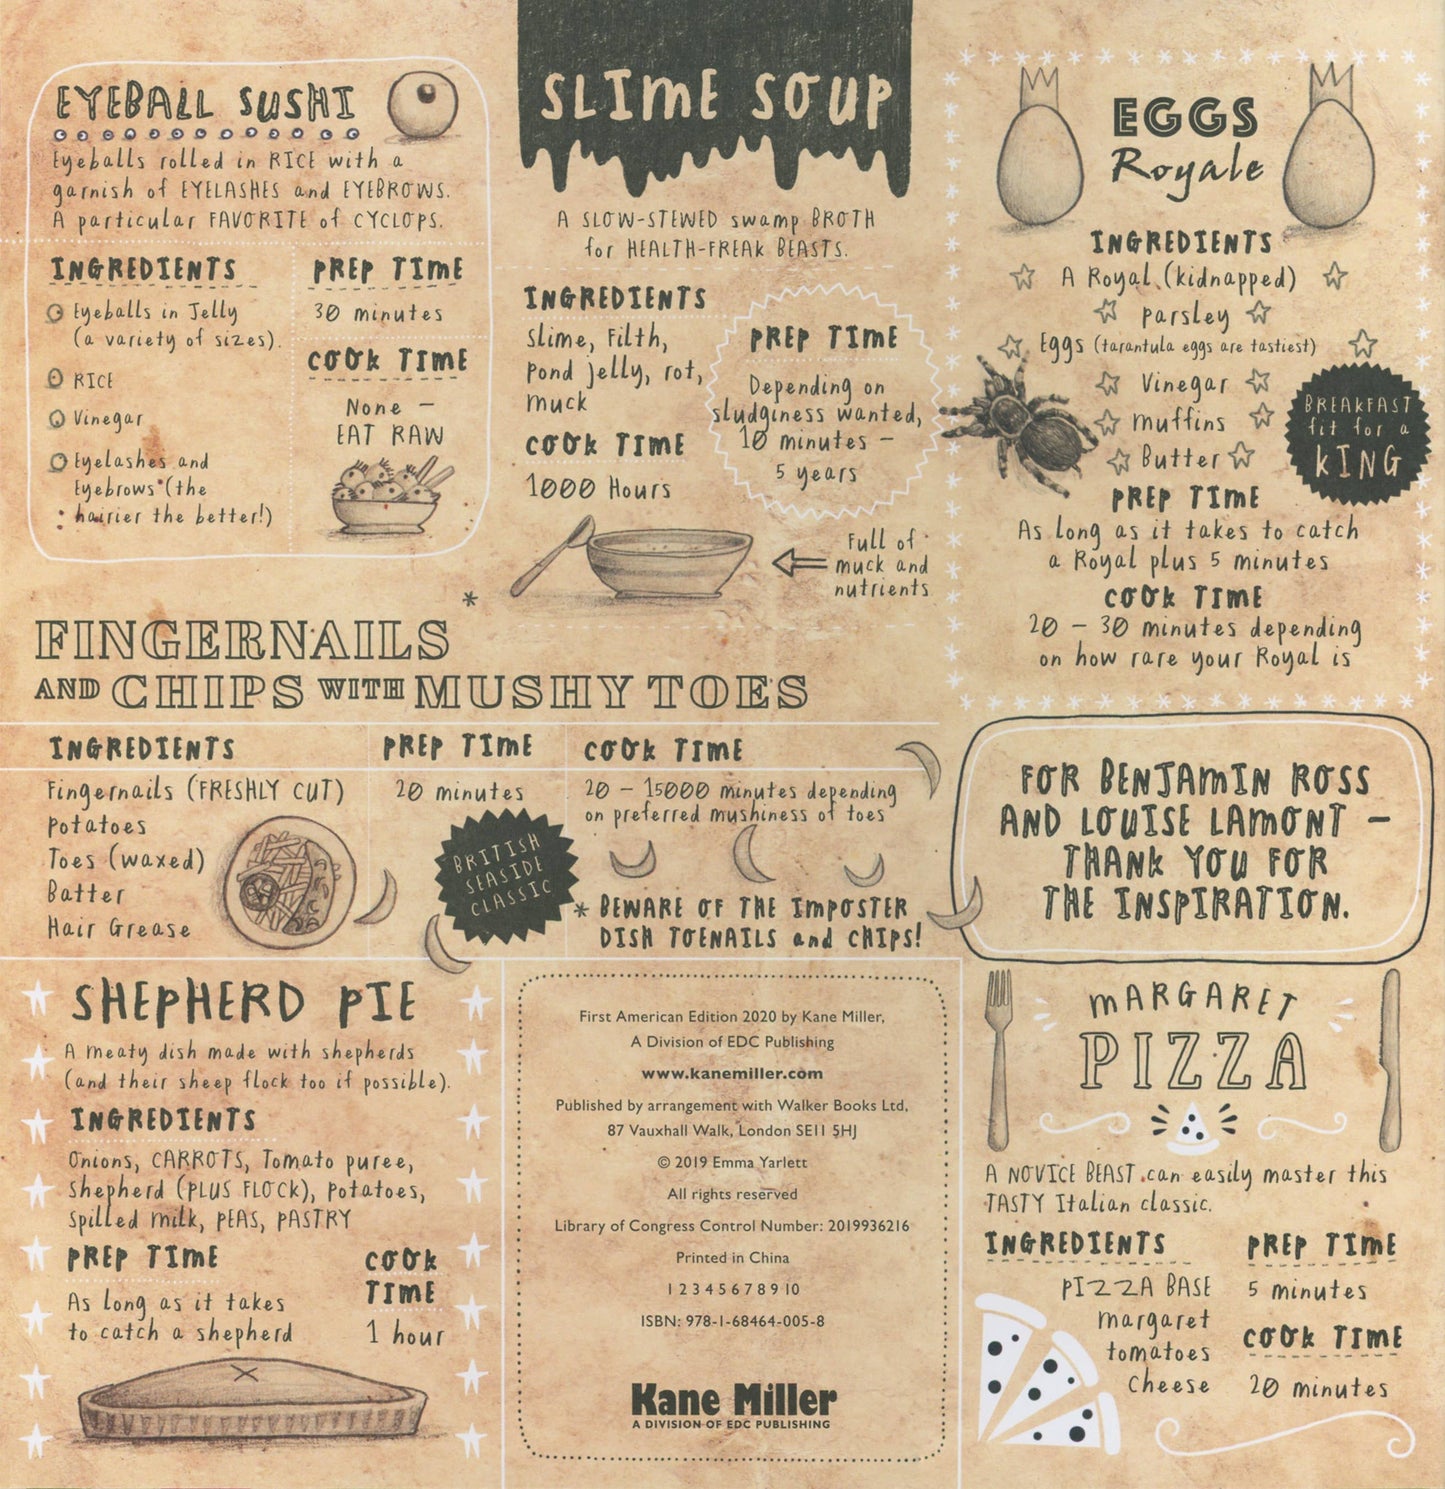 EYEBALL SUSHI
Eyeballs rolled in RICE with a
garnish of EYELASHES and EYEBROWS.
A particular FAVORITE of CYCLOPS.
INGREDIENTS
Eyeballs in Jelly
(a variety of sizes).
RICE
Vinegar
Eyelashes and
Eyebrows (the
hairier the better!)
PREP TIME
30 minutes
COOK TIME
None –
EAT RAW
SLIME SOUP
A SLOW-STEWED swamp BROTH
for HEALTH-FREAK BEASTS.
INGREDIENTS
Slime, Filth,
Pond jelly, rot,
muck
COOK TIME
1000 Hours
PREP TIME
Depending on
sludginess wanted,
10 minutes –
5 years
Full of
muck and
nutrients
EGGS
Royale
INGREDIENTS
A Royal (kidnapped)
parsley
Eggs (tarantula eggs are tastiest)
Vinegar
muffins
Butter
BREAKFAST
fit for a
KING
PREP TIME
As long as it takes to catch
a Royal plus 5 minutes
COOK TIME
20 – 30 minutes depending
on how rare your Royal is
*
FINGERNAILS
AND CHIPS WITH MUSHY TOES
INGREDIENTS
Fingernails (FRESHLY CUT)
Potatoes
Toes (waxed)
Batter
Hair Grease
PREP TIME
20 minutes
BRITISH
SEASIDE
CLASSIC
COOK TIME
20 – 15000 minutes depending
on preferred mushiness of toes
* BEWARE OF THE IMPOSTER
DISH TOENAILS and CHIPS!
FOR BENJAMIN ROSS
AND LOUISE LAMONT –
THANK YOU FOR
THE INSPIRATION.
SHEPHERD PIE
A meaty dish made with shepherds
(and their sheep flock too if possible).
INGREDIENTS
Onions, CARROTS, Tomato puree,
Shepherd (PLUS FLOCK), Potatoes,
Spilled milk, PEAS, PASTRY
PREP TIME
As long as it takes
to catch a shepherd
COOK
TIME
1 hour
First American Edition 2020 by Kane Miller,
A Division of EDC Publishing
www.kanemiller.com
Published by arrangement with Walker Books Ltd,
87 Vauxhall Walk, London SE11 5HJ
© 2019 Emma Yarlett
All rights reserved
Library of Congress Control Number: 2019936216
Printed in China
1 2 3 4 5 6 7 8 9 10
ISBN: 978-1-68464-005-8
Kane Miller
A DIVISION OF EDC PUBLISHING
MARGARET
PIZZA
A NOVICE BEAST can easily master this
TASTY Italian classic.
INGREDIENTS
PIZZA BASE
margaret
tomatoes
Cheese
PREP TIME
5 minutes
COOK TIME
20 minutes